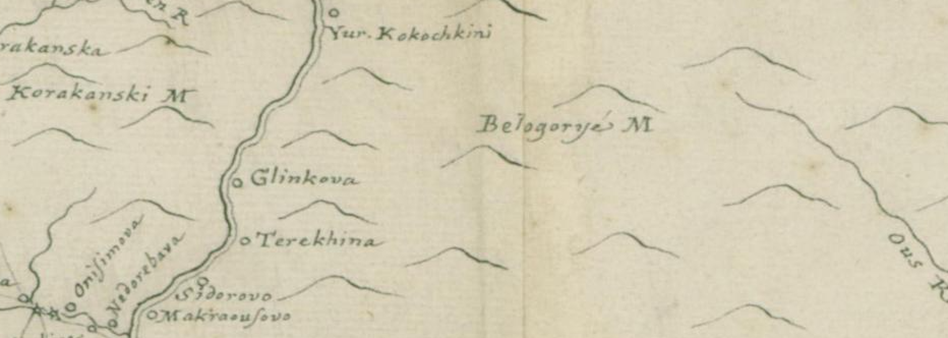 en R
Yur. Kokochkini
rakanska
Korakanski M
Belogoryé M
Glinkova
Terekhina
Oniſimova
Nedorebava
Sidorovo
Makraouſovo
Ous R
a